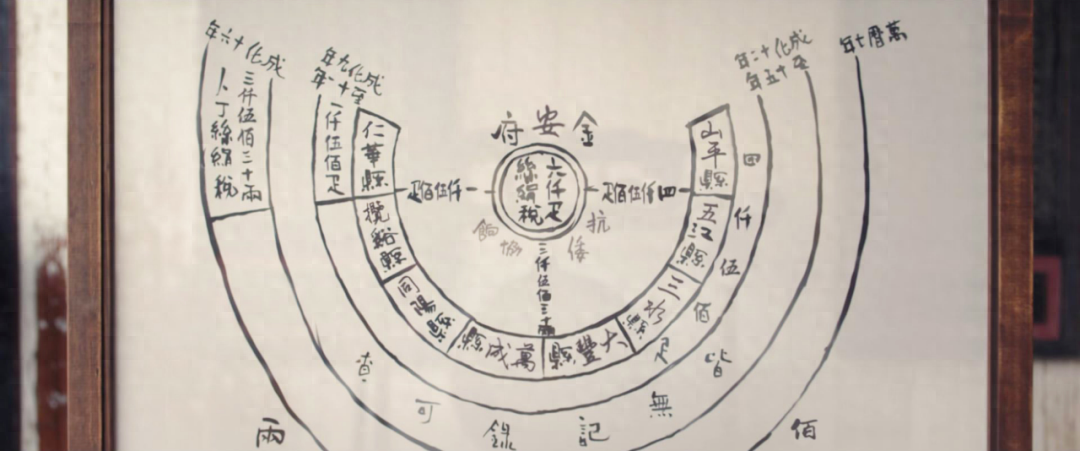 金安府
六仟疋
絲絹稅
仟伍佰疋
四仟伍佰疋
三仟伍佰三十兩
抗倭
協餉
仁華縣
攬谿縣
同陽縣
萬成縣
大豐縣
三水縣
五江縣
山平縣
成化九年
至十一年
一仟伍佰疋
成化十二年
至十五年
四仟伍佰疋
皆無記錄可查
成化十六年
三仟伍佰三十兩
人丁絲絹稅
萬曆七年
佰
兩